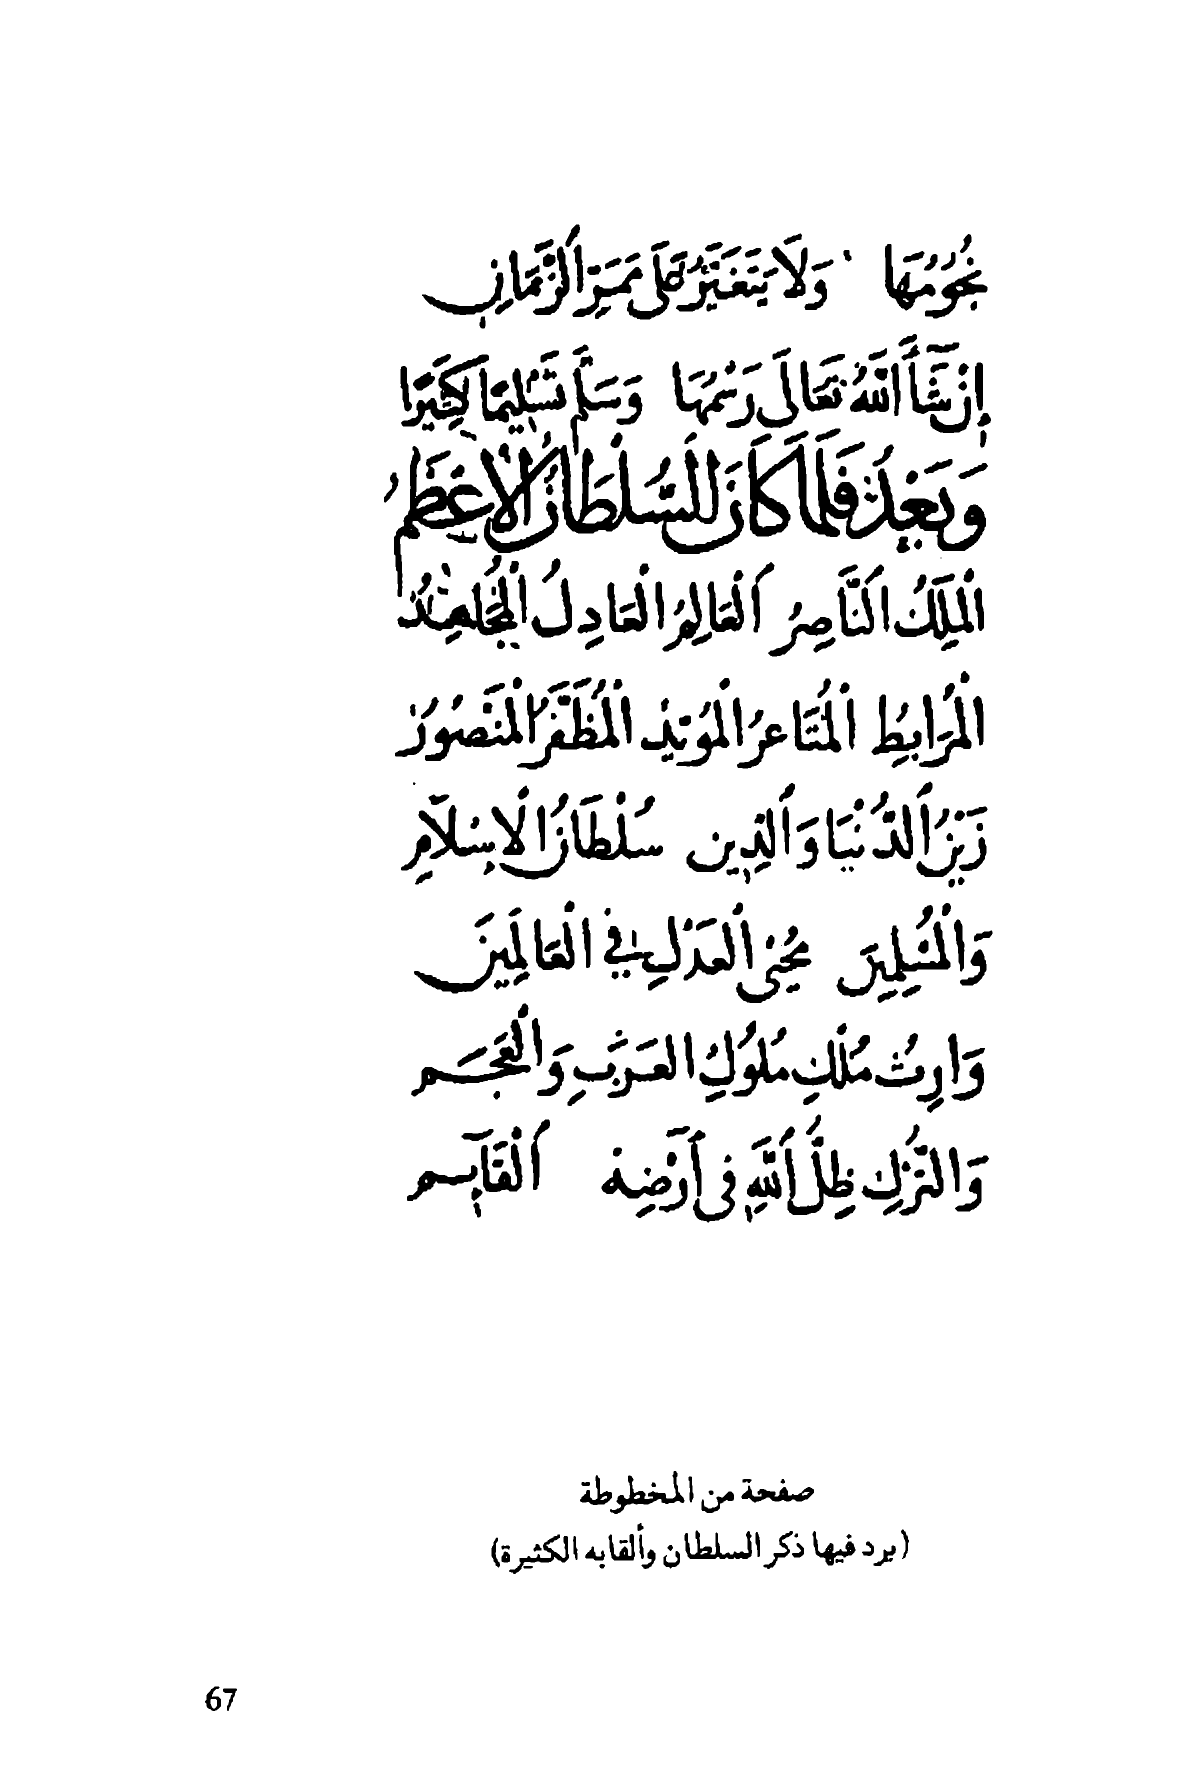 نُجُومُهَا وَلَا يَتَغَيَّرُ عَلَى مَمَرِّ الزَّمَانِ
إِنْ شَآءَ اللّٰهُ تَعَالَى رَسْمُهَا وَسَلَّمَ تَسْلِيمًا كَثِيرًا
وَبَعْدُ فَلَمَّا كَانَ السُّلْطَانُ الْاَعْظَمُ
الْمَلِكُ النَّاصِرُ الْعَالِمُ الْعَادِلُ الْمُجَاهِدُ
الْمُرَابِطُ الْمُثَاغِرُ الْمُؤَيَّدُ الْمُظَفَّرُ الْمَنْصُورُ
زَيْنُ الدُّنْيَا وَالدِّينِ سُلْطَانُ الْاِسْلَامِ
وَالْمُسْلِمِينَ مُحْيِي الْعَدْلِ فِي الْعَالَمِينَ
وَارِثُ مُلْكِ مُلُوكِ الْعَرَبِ وَالْعَجَمِ
وَالتُّرْكِ ظِلُّ اللّٰهِ فِي أَرْضِهِ الْقَآئِم
صفحة من المخطوطة
(يرد فيها ذكر السلطان وألقابه الكثيرة)
67